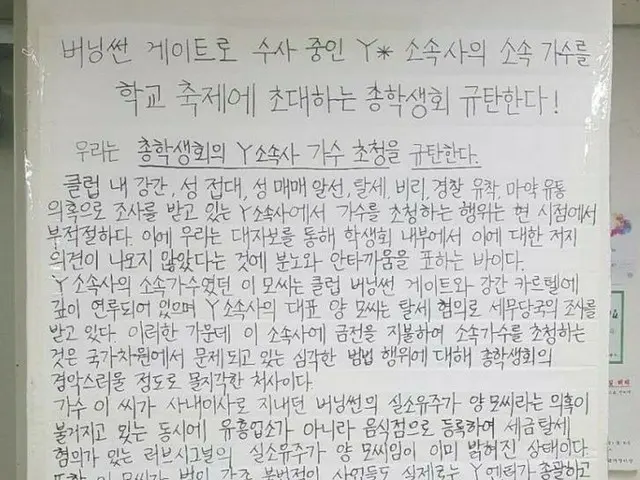 버닝썬 게이트로 수사 중인 Y* 소속사의 소속 가수를
학교 축제에 초대하는 총학생회 규탄한다!
우리는 총학생회의 Y소속사 가수 초청을 규탄한다.
클럽 내 강간, 성 접대, 성 매매 알선, 탈세, 비리, 경찰 유착, 마약 유통
의혹으로 조사를 받고 있는 Y소속사에서 가수를 초청하는 행위는 현 시점에서
부적절하다. 이에 우리는 대자보를 통해 학생회 내부에서 이에 대한 저지
의견이 나오지 않았다는 것에 분노와 안타까움을 표하는 바이다.
Y소속사의 소속가수였던 이 모씨는 클럽 버닝썬 게이트와 강간 카르텔에
깊이 연루되어 있으며 Y소속사의 대표 양 모씨는 탈세 혐의로 세무당국의 조사를
받고 있다. 이러한 가운데 이 소속사에 금전을 지불하여 소속가수를 초청하는
것은 국가차원에서 문제되고 있는 심각한 범법 행위에 대해 총학생회의
경악스러울 정도로 몰지각한 처사이다.
가수 이 씨가 사내이사로 지내던 버닝썬의 실소유주가 양 모씨라는 의혹이
불거지고 있는 동시에 유흥업소가 아니라 음식점으로 등록하여 세금탈세
혐의가 있는 러브시그널의 실소유주가 양 모씨임이 이미 밝혀진 상태이다.